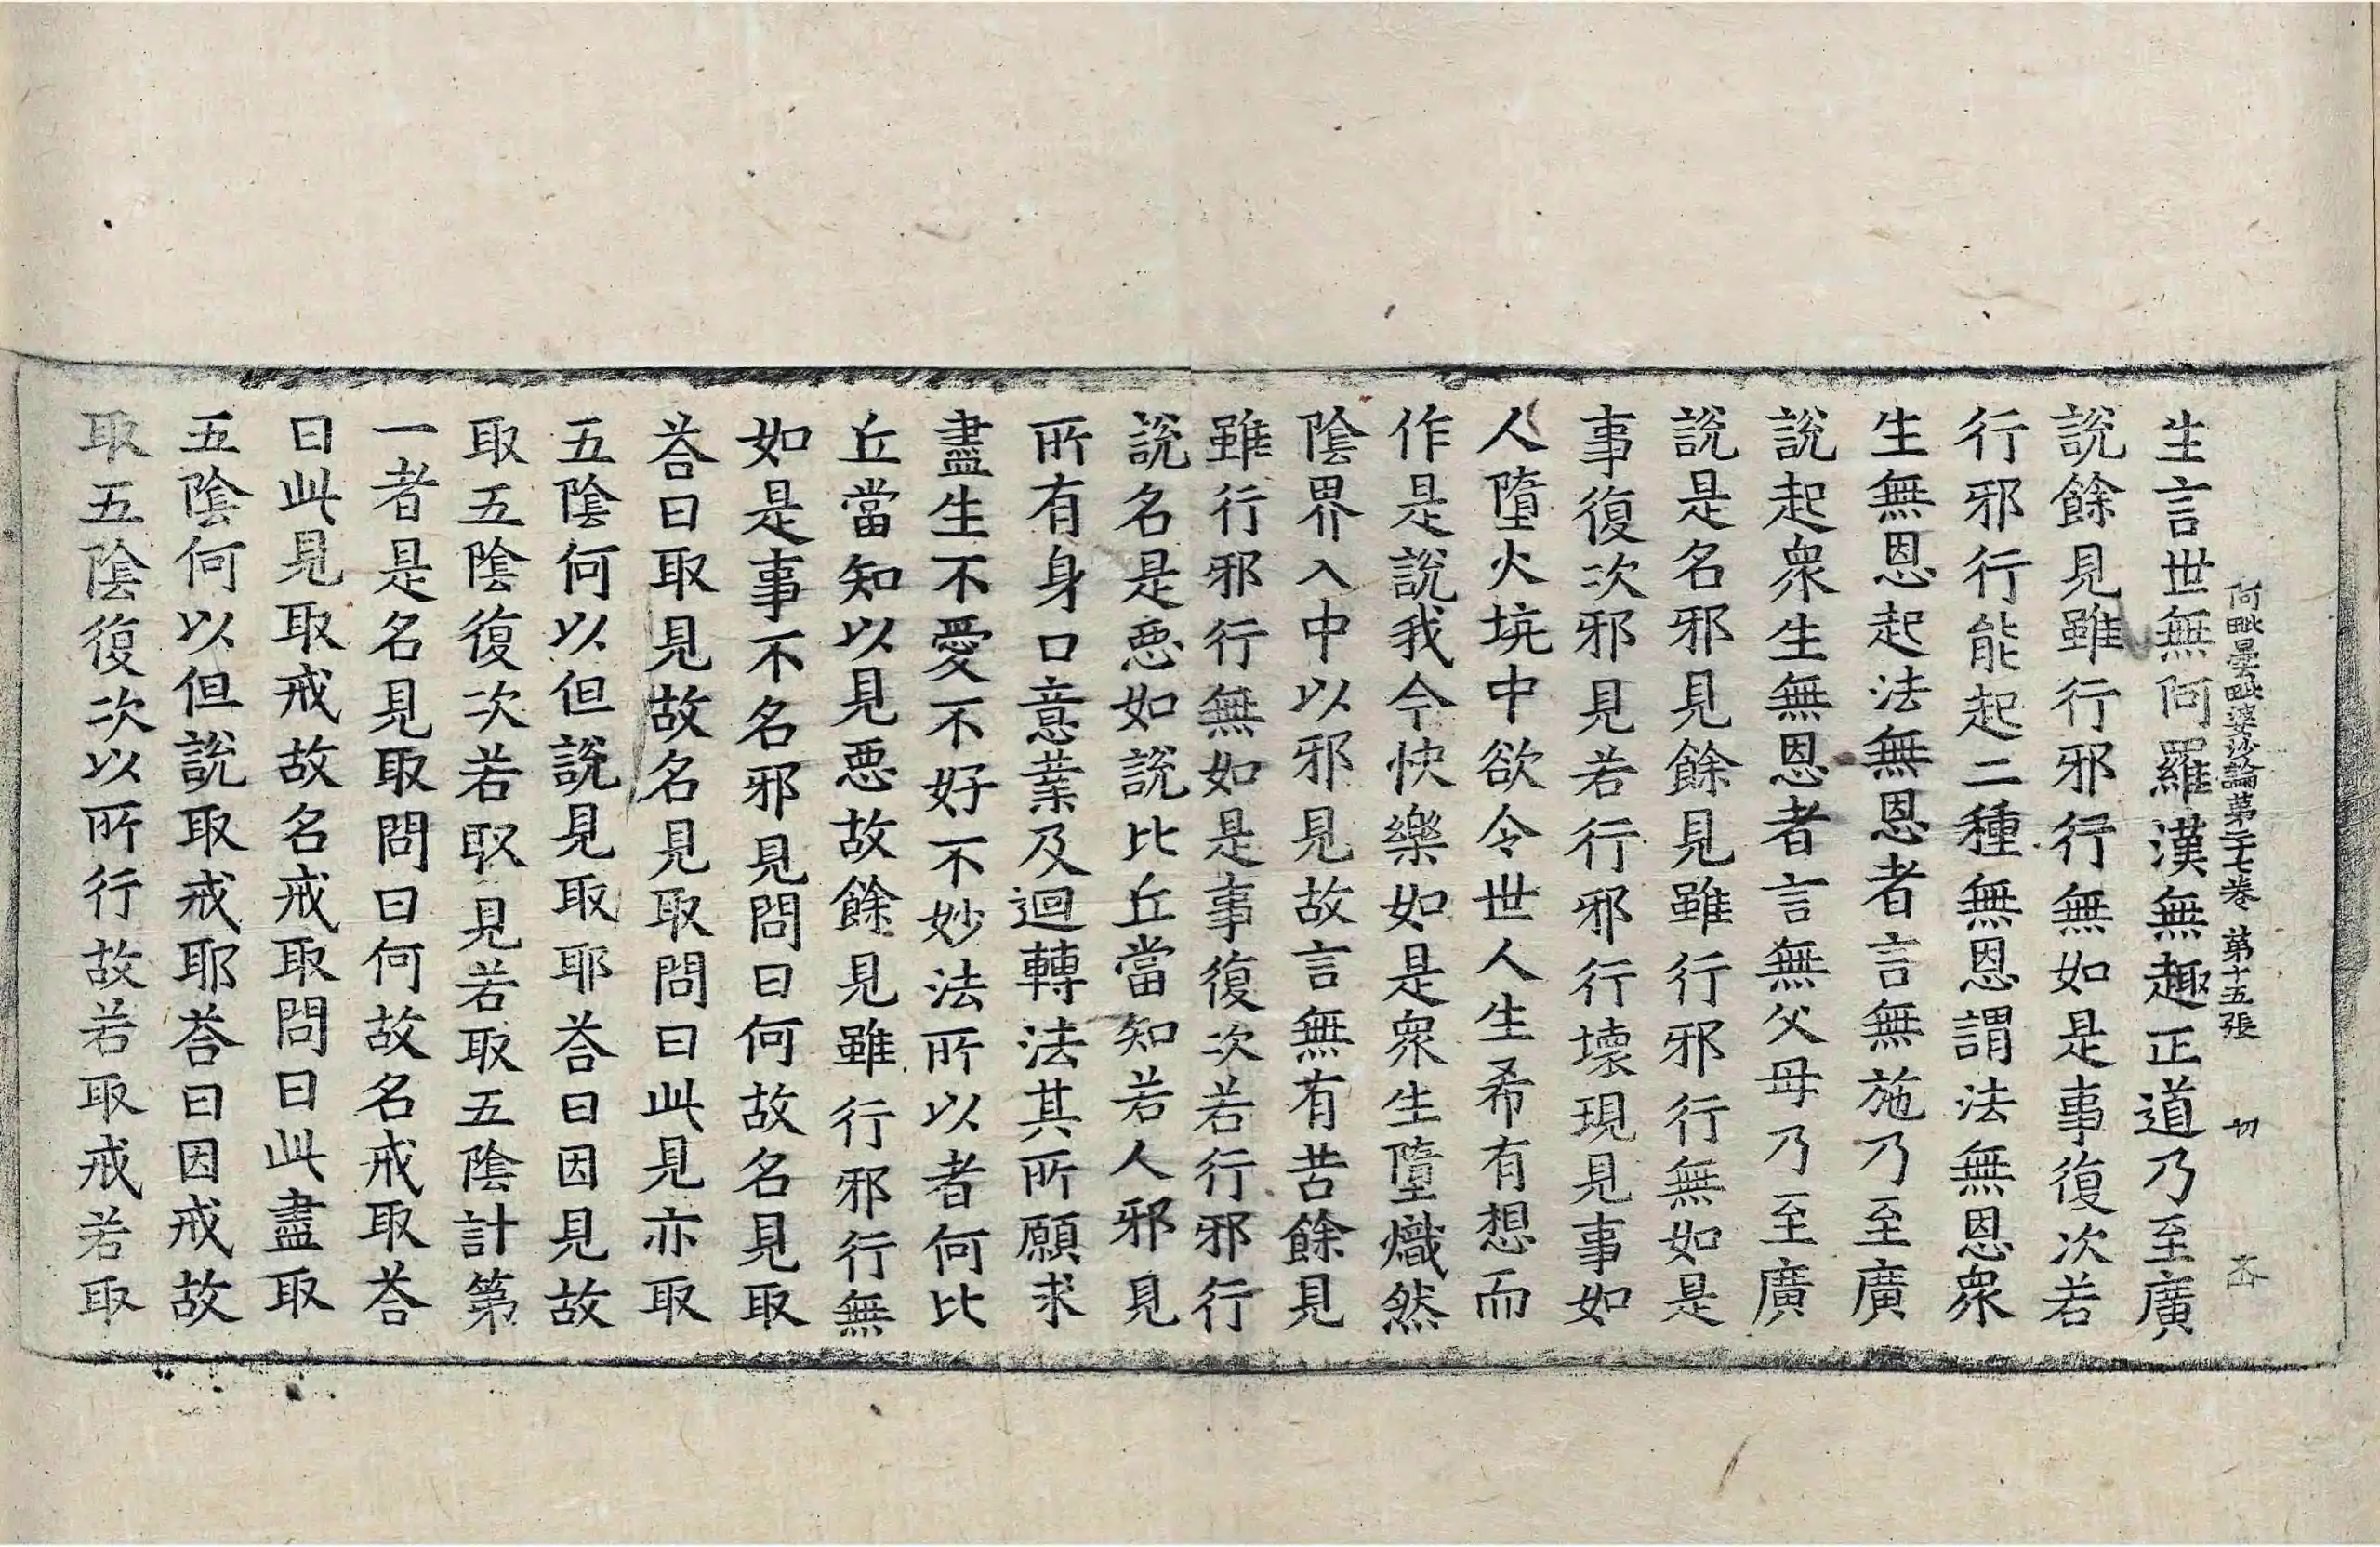 阿毗曇毗婆沙論第二十七卷 第十五張 切
生言世無阿羅漢無趣正道乃至廣
說餘見雖行邪行無如是事復次若
行邪行能起二種無恩謂法無恩衆
生無恩起法無恩者言無施乃至廣
說起衆生無恩者言無父母乃至廣
說是名邪見餘見雖行邪行無如是
事復次邪見若行邪行壞現見事如
人墮火坑中欲令世人生希有想而
作是說我今快樂如是衆生墮熾然
陰界入中以邪見故言無有苦餘見
雖行邪行無如是事復次若行邪行
說名是惡如說比丘當知若人邪見
所有身口意業及迴轉法其所願求
盡生不愛不好不妙法所以者何比
丘當知以見惡故餘見雖行邪行無
如是事不名邪見問曰何故名見取
荅曰取見故名見取問曰此見亦取
五陰何以但說見取耶荅曰因見故
取五陰復次若取見若取五陰計第
一者是名見取問曰何故名戒取荅
曰此見取戒故名戒取問曰此盡取
五陰何以但說取戒耶荅曰因戒故
取五陰復次以所行故若取戒若取